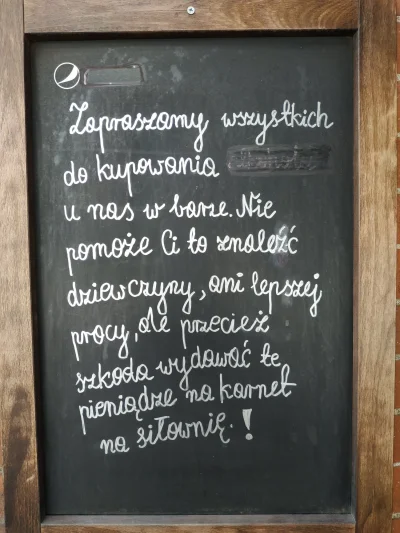 Zapraszamy wszystkich
do kupowania
u nas w barze. Nie
pomoże Ci to znaleźć
dziewczyny, ani lepszej
pracy, ale przecież
szkoda wydawać te
pieniądze na karnet
na siłownię.!